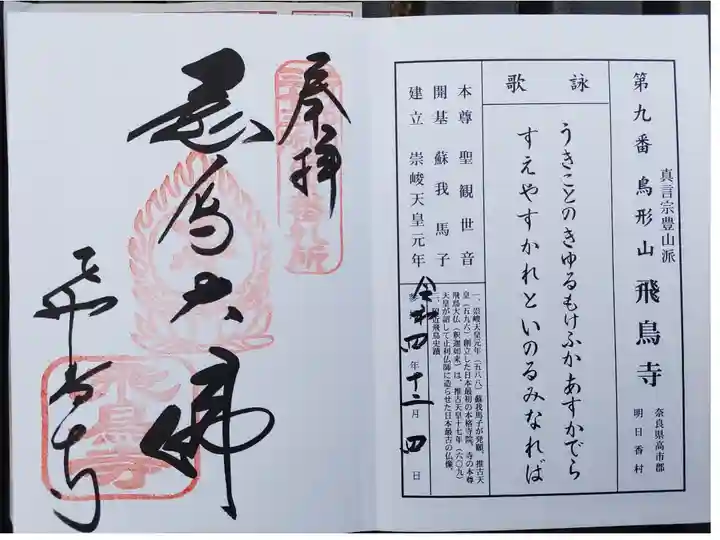 真言宗豊山派
第九番 鳥形山 飛鳥寺
奈良県高市郡
明日香村
詠歌
うきことのきゆるもけふかあすかでら
すえやすかれといのるみなれば
本尊 聖観世音
開基 蘇我馬子
建立 崇峻天皇元年
一、崇峻天皇元年（五八八）蘇我馬子が発願、推古天
皇（五九六）創立した日本最初の本格寺院、寺の本尊
飛鳥大仏（釈迦如来）は、推古天皇十七年（六〇九）
天皇が詔して止利仏師に造らせた日本最古の仏像。
近飛鳥史蹟
令和四年十二月四日
奉拝
飛鳥大佛
飛鳥寺
飛鳥寺